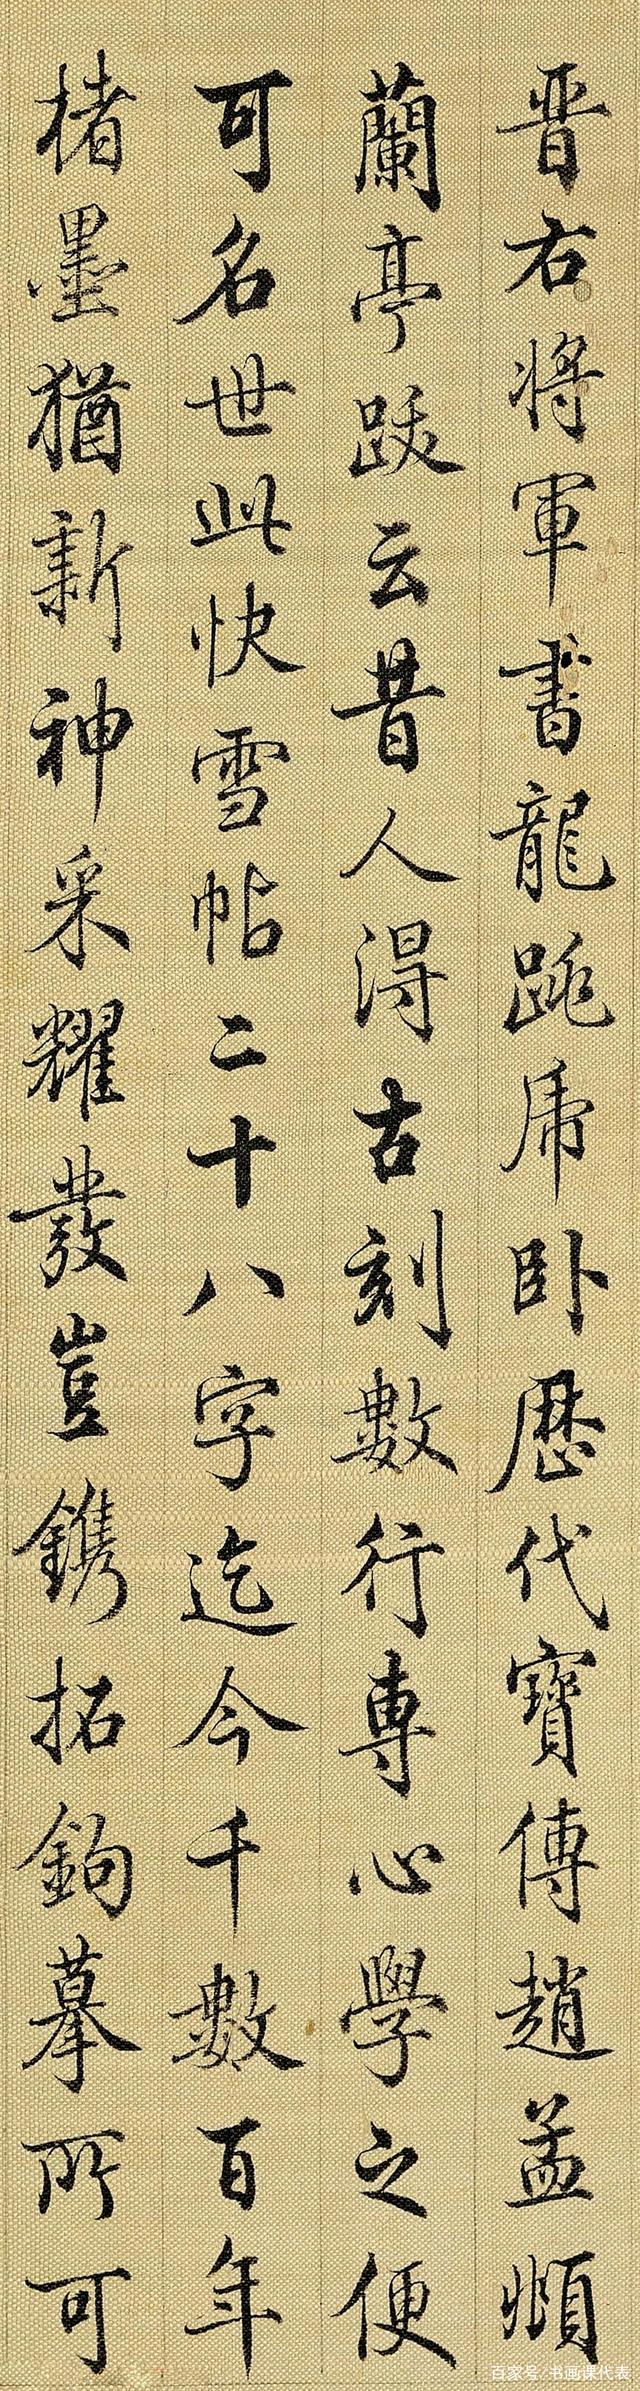 晋右將軍書龍跳虎卧歷代寶傳趙孟頫
蘭亭跋云昔人得古刻數行專心學之便
可名世此快雪帖二十八字迄今千數百年
楮墨猶新神采耀發豈鐫拓鉤摹所可
百家号/书画课代表